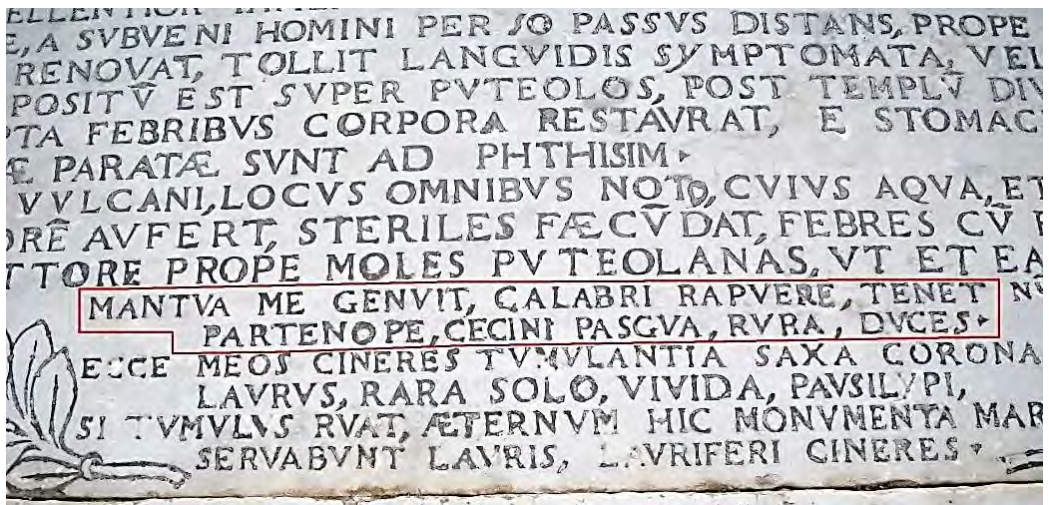 ELLENTIOR
E, A SVBVENI HOMINI PER SO PASSVS DISTANS, PROPE
RENOVAT, TOLLIT LANGVIDIS SYMPTOMATA, VEL
POSITV̂ EST SVPER PVTEOLOS, POST TEMPLV̂ DIV
PTA FEBRIBVS CORPORA RESTAVRAT, E STOMAC
Æ PARATÆ SVNT AD PHTHISIM
VVLCANI, LOCVS OMNIBVS NOTO, CVIVS AQVA, ET
ORÊ AVFERT, STERILES FÆCV̂DAT, FEBRES CV̂
TTORE PROPE MOLES PVTEOLANAS, VT ET EA
MANTVA ME GENVIT, CALABRI RAPVERE, TENET NV
PARTENOPE, CECINI PASCVA, RVRA, DVCES
ECCE MEOS CINERES TVMVLANTIA SAXA CORONA
LAVRVS, RARA SOLO, VIVIDA, PAVSILYPI,
SI TVMVLVS RVAT, ÆTERNVM HIC MONVMENTA MAR
SERVABVNT LAVRIS, LAVRIFERI CINERES